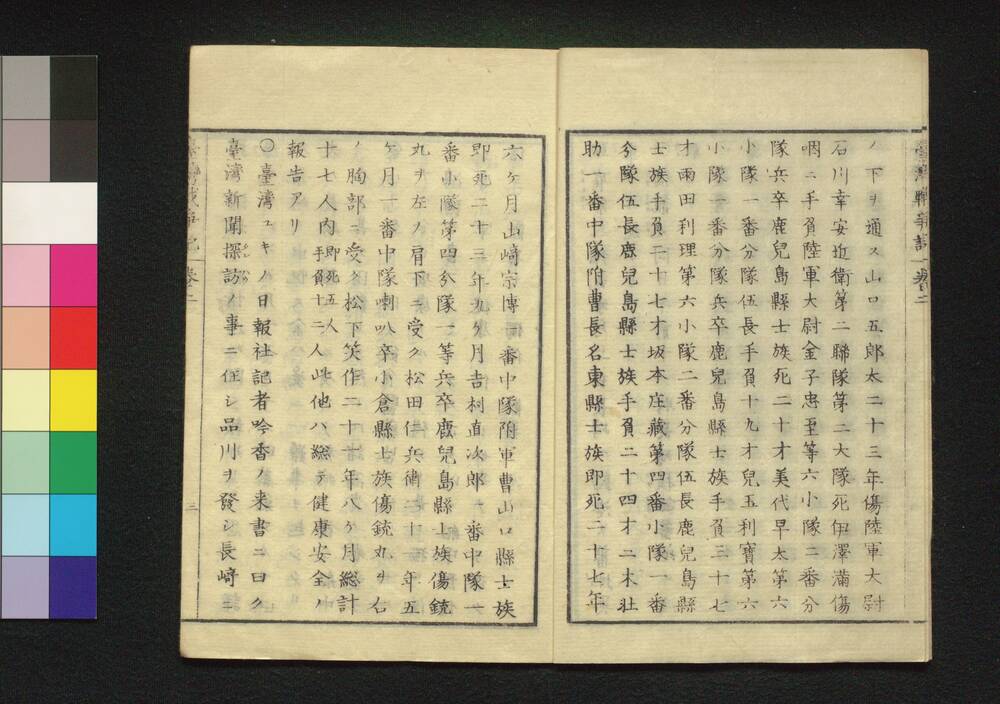 ノ下ヲ通ス山口五郎太二十三年傷陸軍大尉
石川幸安近衛第二聯隊第二大隊死伊澤滿傷
咽ニ手負陸軍大尉金子忠至等六小隊二番分
隊兵卒鹿兒島縣士族死二十才美代早太第六
小隊一番分隊伍長手負十九才兒玉利寶第六
小隊一番分隊兵卒鹿兒島縣士族手負三十七
才雨田利理第六小隊二番分隊伍長鹿兒島縣
士族手負二十七才坂本庄藏第四番小隊一番
分隊伍長鹿兒島縣士族手負二十四才二木壯
助一番中隊附曹長名東縣士族即死二十七年
六ヶ月山﨑宗博一番中隊附軍曹山口縣士族
即死二十三年九ヶ月吉村直次郎一番中隊一
番小隊第四分隊一等兵卒鹿兒島縣士族傷銃
丸ヲ左ノ肩下ニ受ク松田仁兵衛二十一年五
ヶ月一番中隊喇叭卒小倉縣士族傷銃丸ヲ右
ノ胸部ニ受ク松下笑作二十一年八ヶ月総計
十七人内即死五人手負十二人此他ハ総テ健康安全ノ
報告アリ
〇臺灣ユキノ日報社記者吟香ノ来書ニ曰ク
臺灣新聞探訪ノ事ニ任シ品川ヲ發シ長﨑ニ
卷二
三